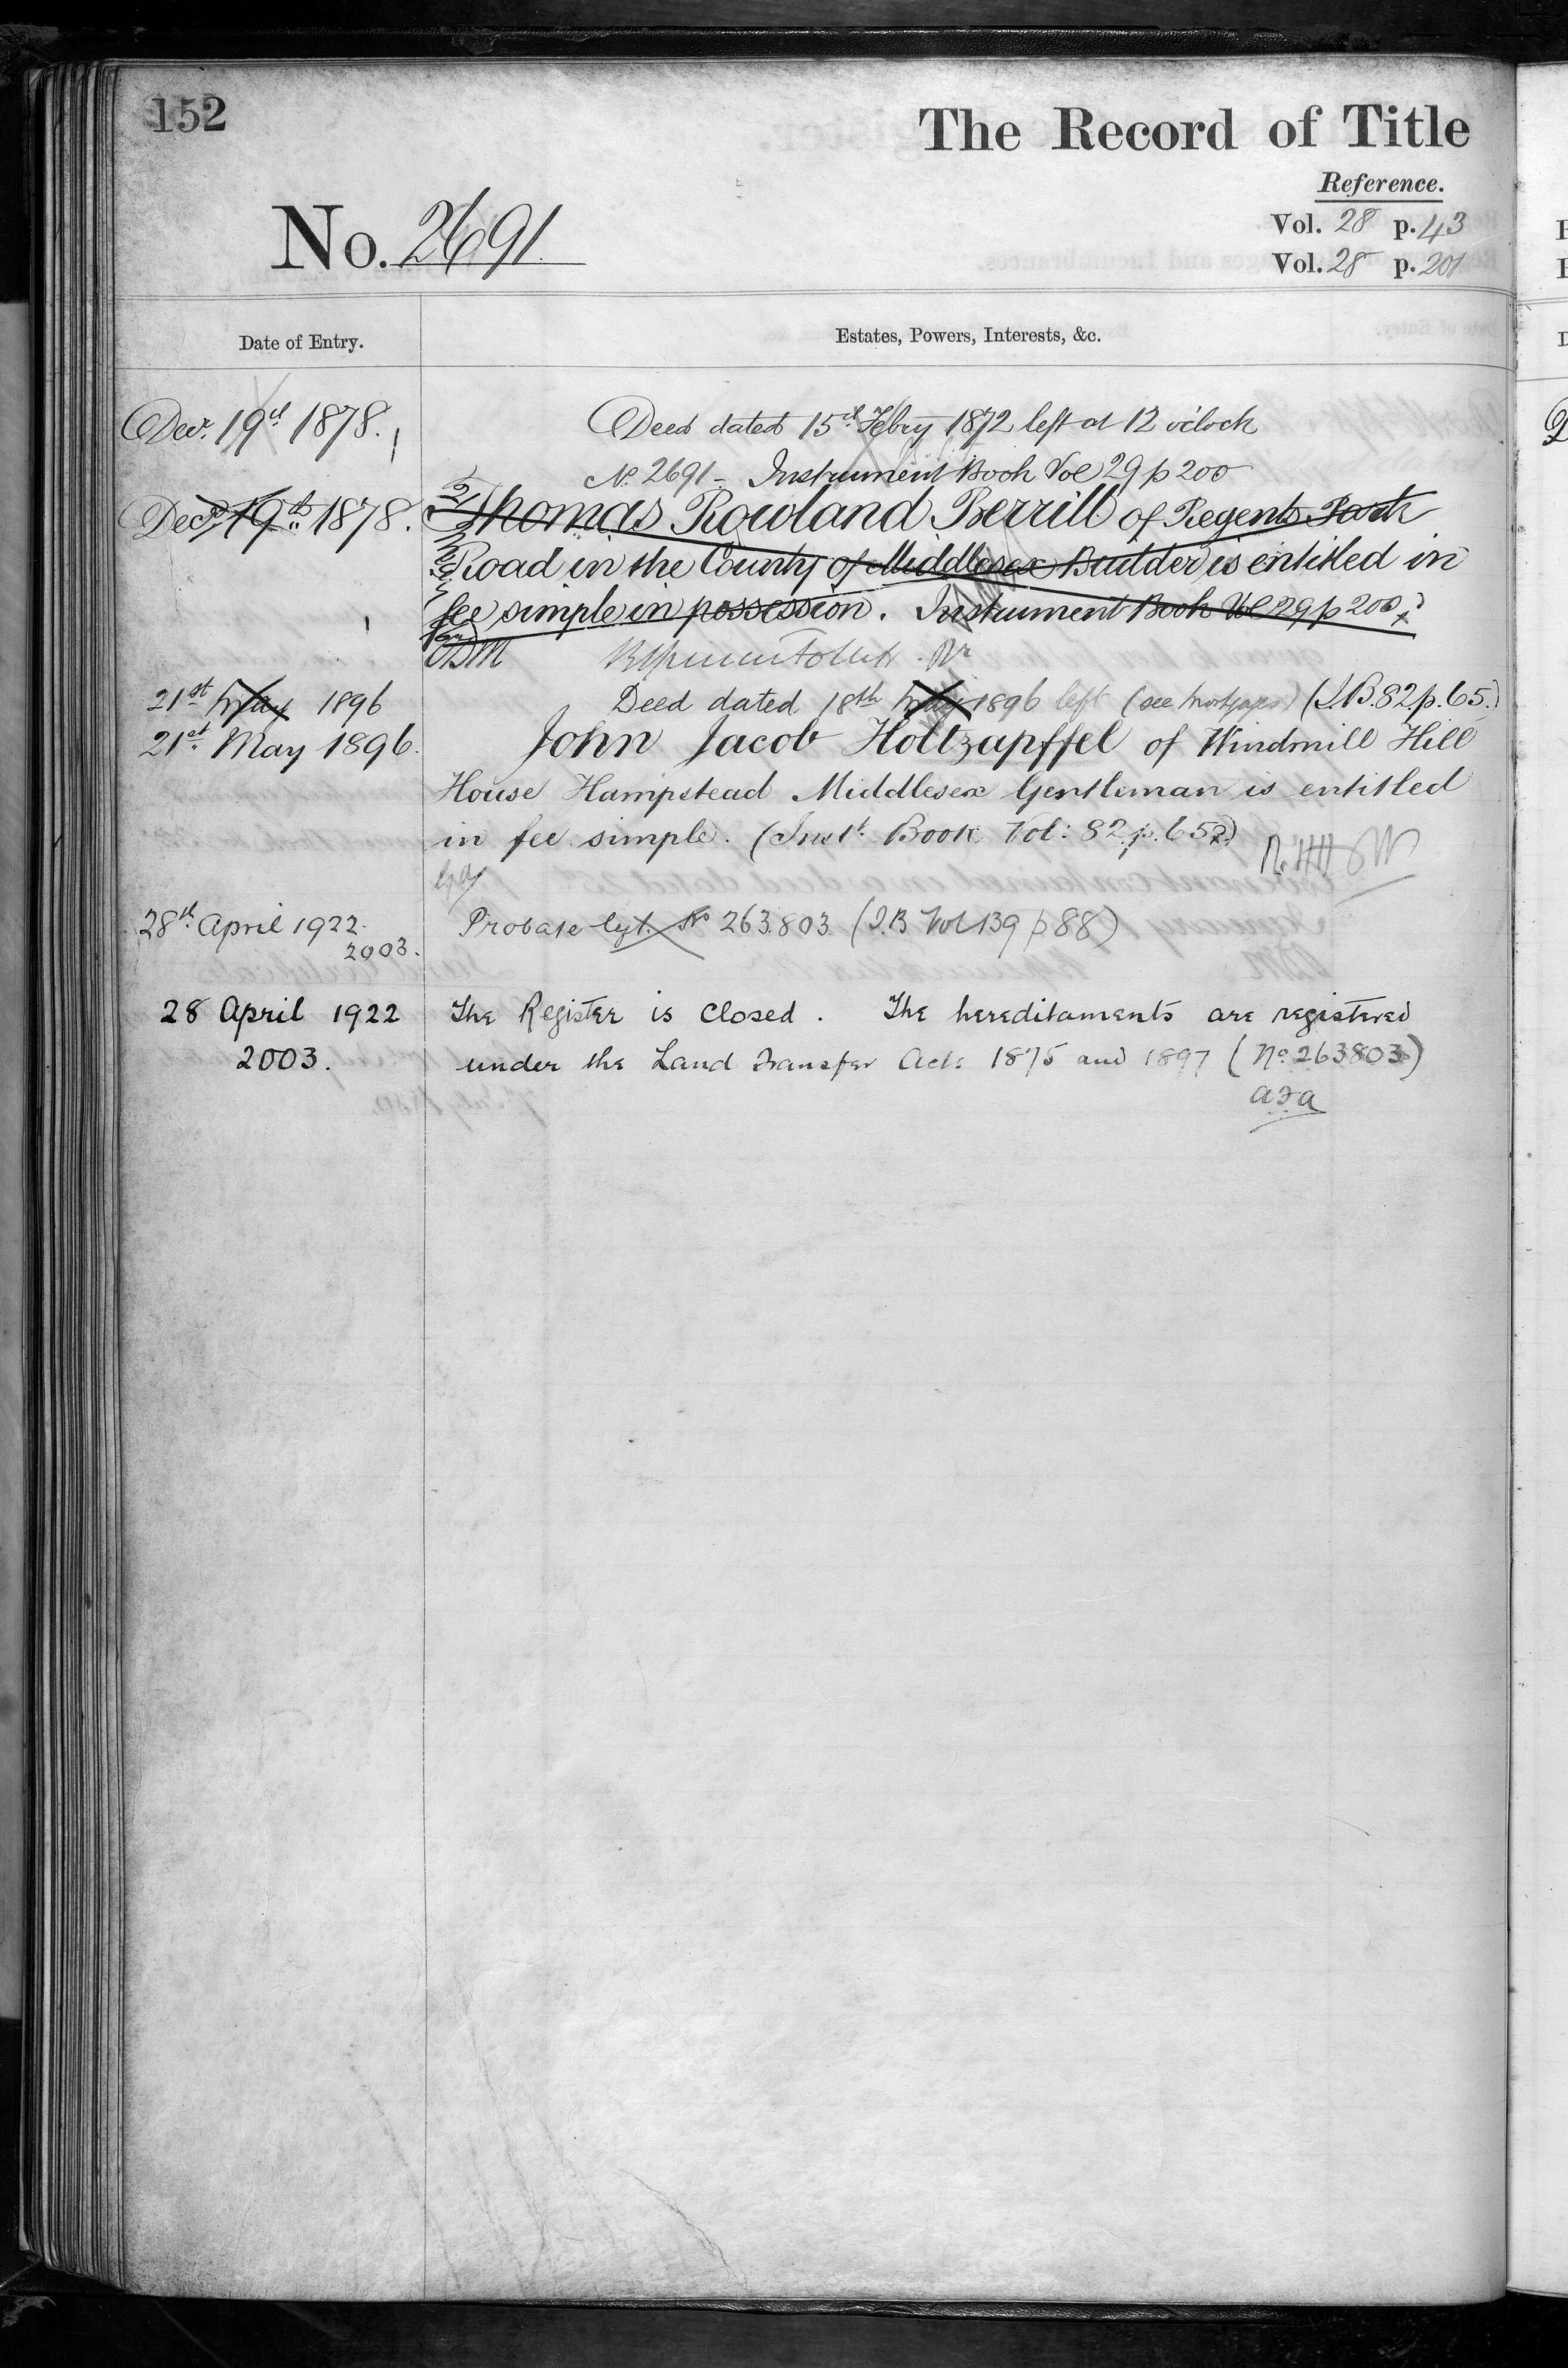 152
The Record of Title
Reference.
No. 2691.
Vol. 28 p. 43
Vol. 28 p. 201
Date of Entry.
Estates, Powers, Interests, &c.
Decr. 19th 1878.
Deed dated 15th Febry 1872 left at 12 o'clock
No. 2691 - Instrument Book Vol 29 p 200
Decr. 19th 1878.
Thomas Rowland Berrill of Regents Park
Road in the County of Middlesex Builder is entitled in
fee simple in possession. Instrument Book Vol 29 p 200
21st May 1896
Deed dated 18th May 1896 left (see Mortgages) (I.B. 82. p. 65.)
21st May 1896.
John Jacob Holtzapffel of Windmill Hill
House Hampstead Middlesex Gentleman is entitled
in fee simple. (Inst. Book Vol: 82. p. 65.)
28th April 1922.
2003.
Probate No 263.803 (I.B Vol 139 p 88)
28 April 1922
2003.
The Register is Closed. The hereditaments are registered
under the Land Transfer Acts 1875 and 1897 (No. 263803)